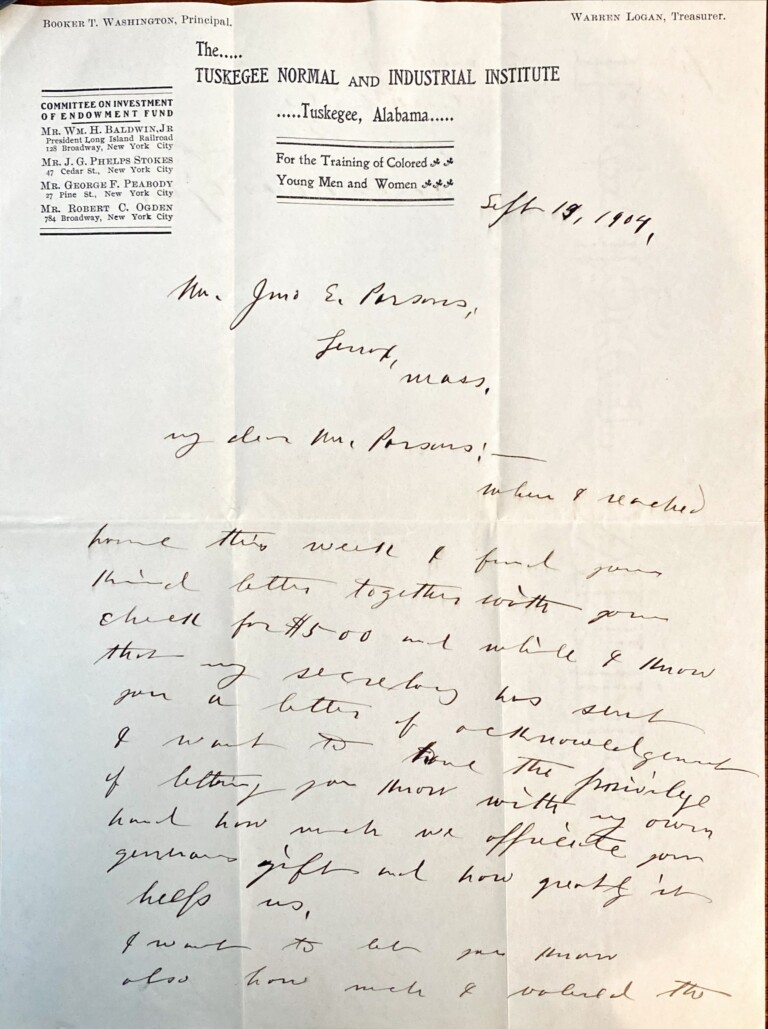 BOOKER T. WASHINGTON, Principal.
WARREN LOGAN, Treasurer.
The.....
TUSKEGEE NORMAL AND INDUSTRIAL INSTITUTE
.....Tuskegee, Alabama.....
For the Training of Colored
Young Men and Women
COMMITTEE ON INVESTMENT
OF ENDOWMENT FUND
MR. WM. H. BALDWIN, JR
President Long Island Railroad
128 Broadway, New York City
MR. J. G. PHELPS STOKES
47 Cedar St., New York City
MR. GEORGE F. PEABODY
27 Pine St., New York City
MR. ROBERT C. OGDEN
784 Broadway, New York City
Sept 19, 1904,
Mr. Jno E. Parsons,
Lenox,
Mass,
My dear Mr. Parsons:—
When I reached
home this week I find your
kind letter together with your
check for $500 and while I know
that my secretary has sent
you a letter of acknowledgement
I want to have the privilege
of letting you know with my own
hand how much we appreciate your
generous gift and how greatly it
helps us.
I want to let you know
also how much I valued the